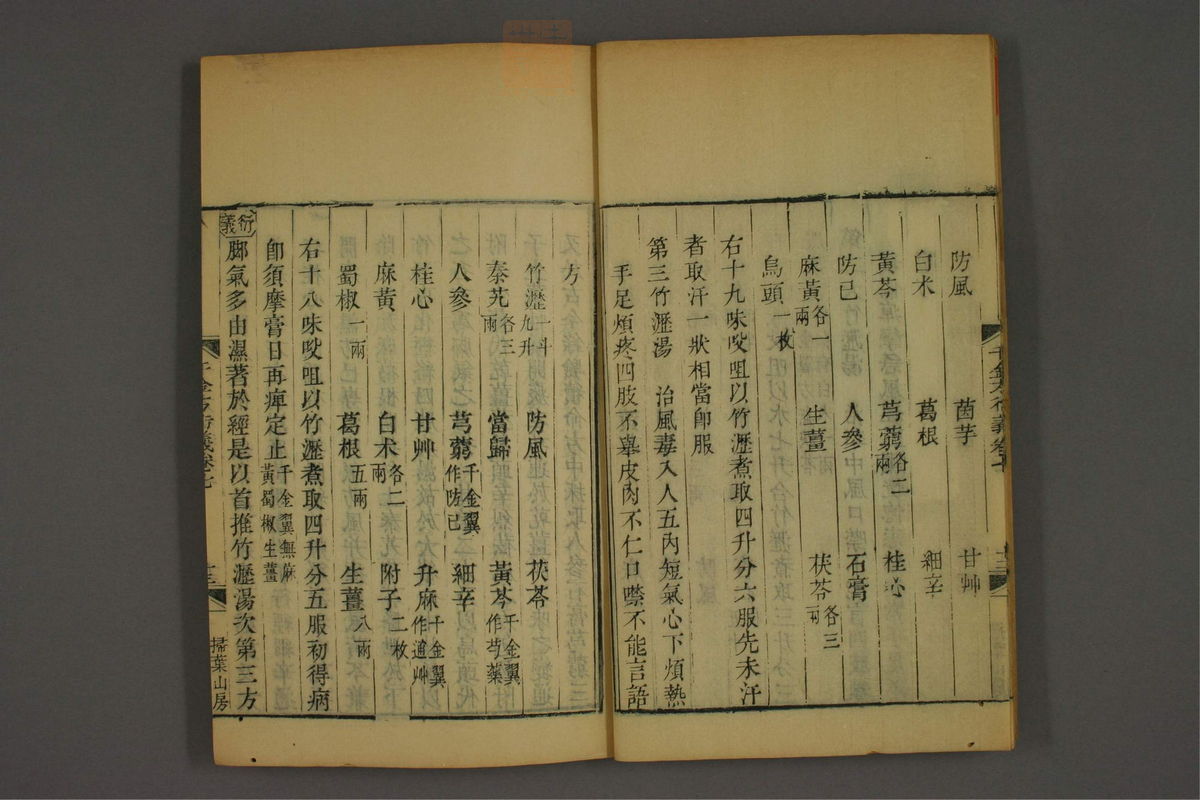 防風 茵芋 甘艸
白朮 葛根 細辛
黃芩 芎藭各二兩 桂心
防己 人參 石膏
麻黃各一兩 生薑 茯苓各三兩
烏頭一枚
右十九味㕮咀以竹瀝煮取四升分六服先未汗
者取汗一狀相當卽服
第三竹瀝湯 治風毒入人五內短氣心下煩熱
手足煩疼四肢不舉皮肉不仁口噤不能言語
方
竹瀝一斗九升 防風 茯苓
秦艽各三兩 當歸 黃芩千金翼作芍藥
人參 芎藭千金翼作防己 細辛
桂心 甘艸 升麻千金翼作通艸
麻黃 白朮各二兩 附子二枚
蜀椒一兩 葛根五兩 生薑八兩
右十八味㕮咀以竹瀝煮取四升分五服初得病
卽須摩膏日再痺定止千金翼無麻黃蜀椒生薑
衍義
腳氣多由濕著於經是以首推竹瀝湯次第三方
千金方衍義卷七 十三 掃葉山房